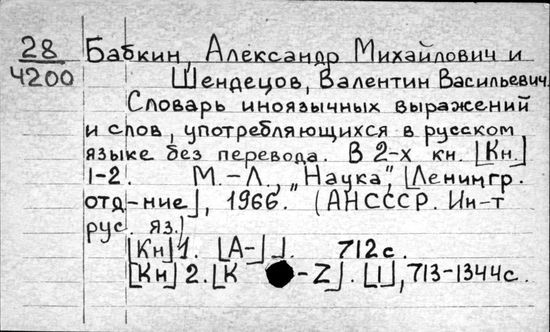 28
4200
Бабкин, Александр Михайлович и
Шендецов, Валентин Васильевич.
Словарь иноязычных выражений
и слов, употребляющихся в русском
языке без перевода. В 2-х кн. [Кн.]
1-2. М.-Л., "Наука", [Ленингр.
отд-ние], 1966. (АНСССР. Ин-т
рус. яз.)
[Кн] 1. [A-J]. 712 с.
[Кн] 2. [K -Z]. [1], 713-1344 с.